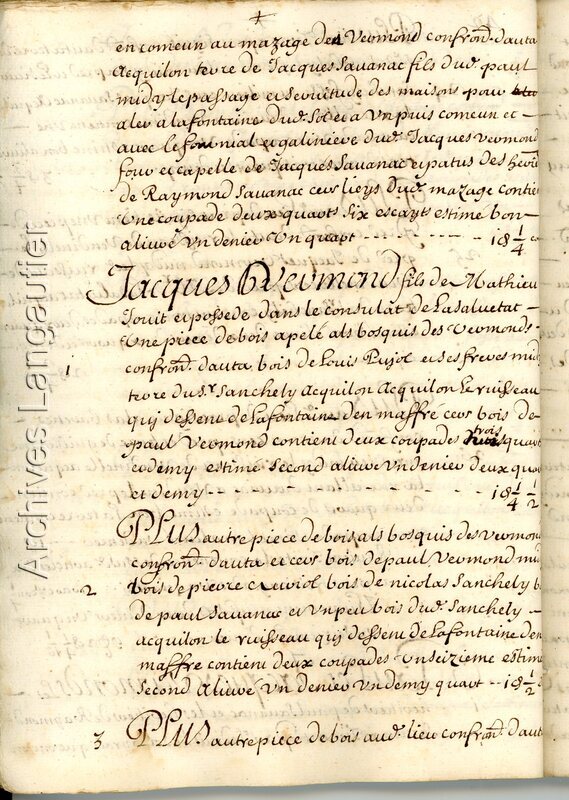 en comeun au mazage de Vermond confron. dauta
Acquilon terre de Jacques Savanac fils du. paul
midy le passage et servitude des maisons pour
aler a la fontaine du. sol et a Un puis comeun et
avec le et galiniere du. Jacques vermond
four et capelle de Jacques Savanac et patus des
de Raymond Savanac cers lieys du. mazage contie
Une coupade deux quarts six escayts estime bon
alivré Un denier Un quart - - - - - - 1 δ 1/4
Jacques Vermond fils de Mathieu
Jouit et possede dans le consulat de La Salvetat
1 Une piece de bois apelé als bosquis des Vermonds
confron. dauta bois de Louis Pujol et ses freres mid
terre du Sr. Sanchely Acquilon Acquilon Le ruisseau
qui dessent de La fontaine den maffre cers bois de
paul Vermond contient deux coupades trois quart
et demy estime second alivré Un denier deux qua
et demy - - - - - - 1 δ 1/4 1/2
PLUS autre piece de bois als bosquis des vermon
confron. dauta et cers bois de paul Vermond mid
2 bois de pierre bois de nicolas Sanchely b
de paul Savanac et Un peu bois du. Sanchely
acquilon le ruisseau qui dessent de La fontaine den
maffre contient deux coupades Un seizieme estime
Second Alivré Un denier Un demy quart - - 1 δ 1/2
3 PLUS autre piece de bois aud. lieu confron. dauta
Archives Langautier